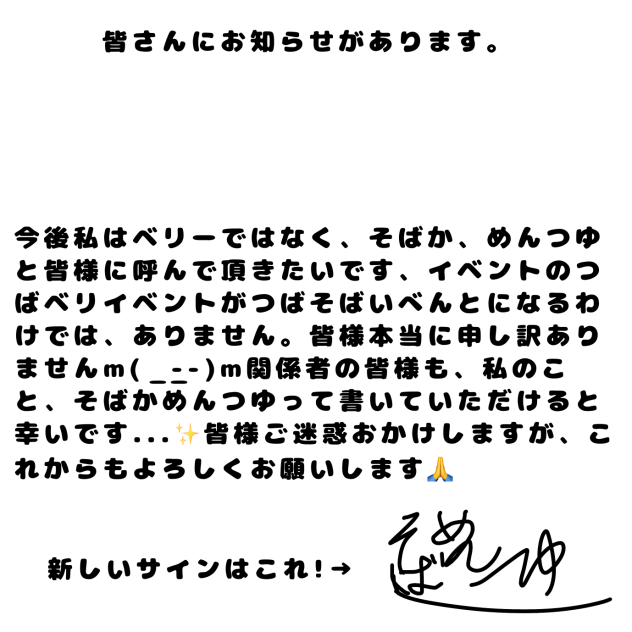 皆さんにお知らせがあります。
今後私はベリーではなく、そばか、めんつゆ
と皆様に呼んで頂きたいです、イベントのつ
ばベリイベントがつばそばいべんとになるわ
けでは、ありません。皆様本当に申し訳あり
ませんm(_ _)m関係者の皆様も、私のこ
と、そばかめんつゆって書いていただけると
幸いです...✨皆様ご迷惑おかけしますが、こ
れからもよろしくお願いします🙏
新しいサインはこれ!→
そば めんつゆ